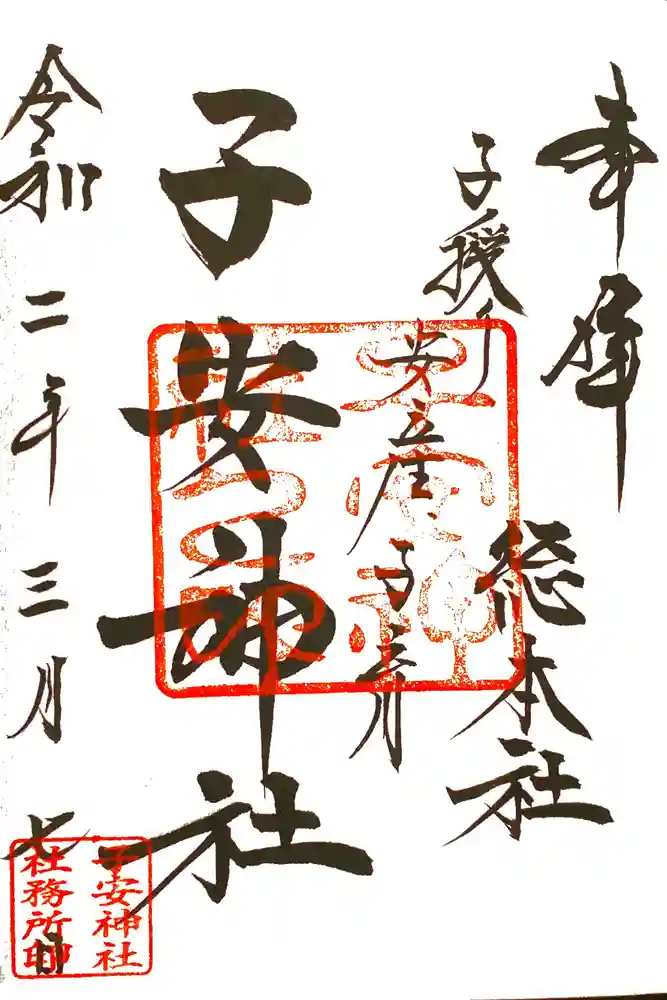 奉拝
総本社
子授け
安産
子安神社
令和二年三月七日
子安神社
社務所印